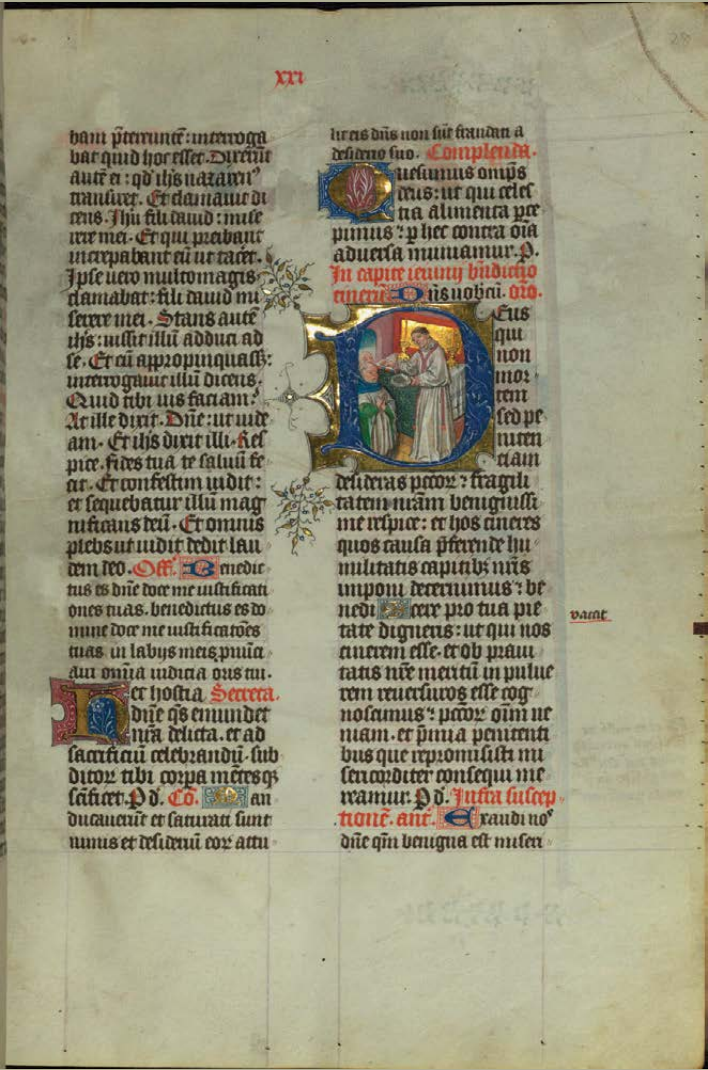 xxi
28
bam p̃terirunt̃: interroga
bat quid hoc esset. Dixerũt
autẽ ei: qd̃ ihs̃ nazaren⁹
transiret. Et clamauit di
cens. Jhũ fili dauid: mise
rere mei. Et qui preibant
increpabant eũ ut tacet̃.
Ipse uero multomagis
clamabat: fili dauid mi
serere mei. Stans autẽ
ihs̃: iussit illũ adduci ad
se. Et cũ appropinquass;:
interrogauit illũ dicens.
Quid tibi uis faciam?
At ille dixit. Dñe: ut uide
am. Et ihs̃ dixit illi. Res
pice. fides tua te saluũ fe
cit. Et confestim uidit:
et sequebatur illũ mag
nificans deũ. Et omnis
plebs ut uidit dedit lau
dem deo. Off. Benedic
tus es dñe doce me iustificati
ones tuas. benedictus es do
mine doce me iustificatões
tuas in labijs meis p̃nũci
aui omnia iudicia oris tui.
Hec hostia Secreta.
dñe q̃s emundet
nr̃a delicta. et ad
sacrificiũ celebrandũ. sub
ditor̃ tibi corp̃a mẽtesq;
sc̃ificet. P̲ d. Cõ. Man
ducauerũt et saturati sunt
nimis et desideriũ eor̃ attu
lit eis dñs non sũt fraudati a
desiderio suo. Complenda.
Quesumus omp̃s
deus: ut qui celes
tia alimenta p̲ce
pimus: p̲ hec contra oĩa
aduersa muniamur. P̲.
In capite ieiunij bñdictio
cinerũ. Dñs uobcũ. orõ.
Deus
qui
non
mor
tem
sed pe
niten
ciam
desideras pccor̃: fragili
tatem nr̃am benignissi
me respice: et hos cineres
quos causa p̃ferende hu
militatis capitib; nr̃is
imponi decernimus: be
nedicere pro tua pie
tate digneris: ut qui nos
cinerem esse. et ob praui
tatis nr̃e meritũ in pulue
rem reuersuros esse cog
noscimus: pccor̃ oĩm ue
niam. et p̃mia penitenti
bus que repromisisti mi
sericorditer consequi me
reamur. P̲ d. Infra suscep
tionẽ. ant̃. Exaudi no⁹
dñe qm̃ benigna est miseri
vacat